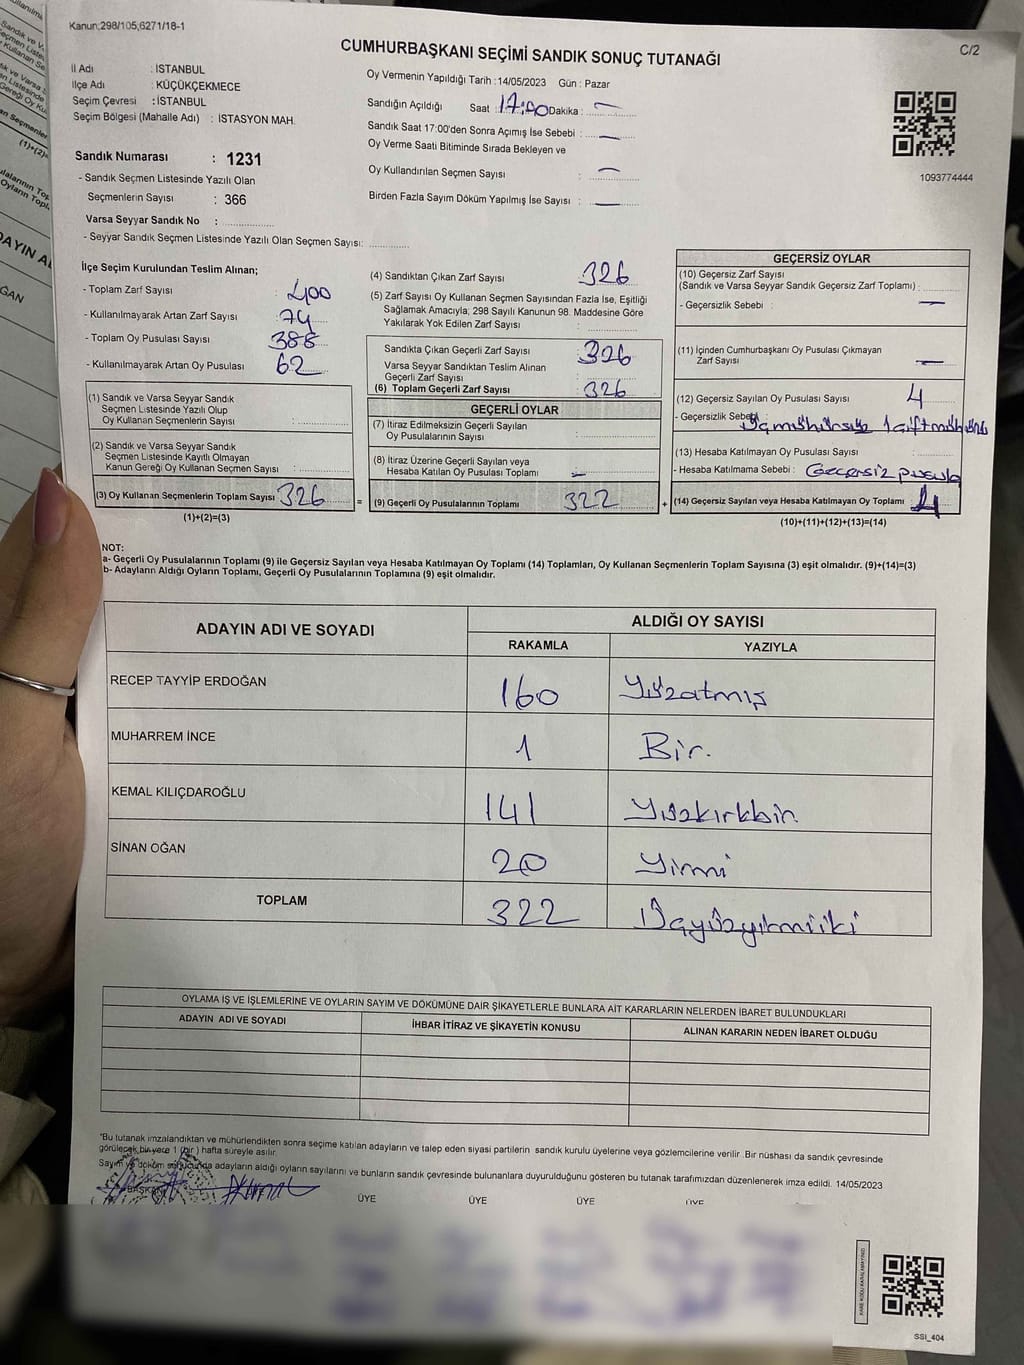 Kanun;298/105,6271/18-1
C/2
CUMHURBAŞKANI SEÇİMİ SANDIK SONUÇ TUTANAĞI
İl Adı : İSTANBUL
İlçe Adı : KÜÇÜKÇEKMECE
Seçim Çevresi : İSTANBUL
Seçim Bölgesi (Mahalle Adı) : İSTASYON MAH.
Sandık Numarası : 1231
- Sandık Seçmen Listesinde Yazılı Olan
Seçmenlerin Sayısı : 366
Varsa Seyyar Sandık No :
- Seyyar Sandık Seçmen Listesinde Yazılı Olan Seçmen Sayısı:
Oy Vermenin Yapıldığı Tarih : 14/05/2023 Gün : Pazar
Sandığın Açıldığı Saat : 17:00 Dakika : —
Sandık Saat 17:00'den Sonra Açımış İse Sebebi : —
Oy Verme Saati Bitiminde Sırada Bekleyen ve
Oy Kullandırılan Seçmen Sayısı : —
Birden Fazla Sayım Döküm Yapılmış İse Sayısı : —
1093774444
İlçe Seçim Kurulundan Teslim Alınan;
- Toplam Zarf Sayısı : 400
- Kullanılmayarak Artan Zarf Sayısı : 74
- Toplam Oy Pusulası Sayısı : 388
- Kullanılmayarak Artan Oy Pusulası : 62
(1) Sandık ve Varsa Seyyar Sandık
Seçmen Listesinde Yazılı Olup
Oy Kullanan Seçmenlerin Sayısı :
(2) Sandık ve Varsa Seyyar Sandık
Seçmen Listesinde Kayıtlı Olmayan
Kanun Gereği Oy Kullanan Seçmen Sayısı :
(3) Oy Kullanan Seçmenlerin Toplam Sayısı 326
(1)+(2)=(3)
=
(4) Sandıktan Çıkan Zarf Sayısı : 326
(5) Zarf Sayısı Oy Kullanan Seçmen Sayısından Fazla İse, Eşitliği
Sağlamak Amacıyla; 298 Sayılı Kanunun 98. Maddesine Göre
Yakılarak Yok Edilen Zarf Sayısı :
Sandıkta Çıkan Geçerli Zarf Sayısı : 326
Varsa Seyyar Sandıktan Teslim Alınan
Geçerli Zarf Sayısı :
(6) Toplam Geçerli Zarf Sayısı : 326
GEÇERLİ OYLAR
(7) İtiraz Edilmeksizin Geçerli Sayılan
Oy Pusulalarının Sayısı :
(8) İtiraz Üzerine Geçerli Sayılan veya
Hesaba Katılan Oy Pusulası Toplamı : —
(9) Geçerli Oy Pusulalarının Toplamı : 322
+
GEÇERSİZ OYLAR
(10) Geçersiz Zarf Sayısı
(Sandık ve Varsa Seyyar Sandık Geçersiz Zarf Toplamı) :
- Geçersizlik Sebebi : —
(11) İçinden Cumhurbaşkanı Oy Pusulası Çıkmayan
Zarf Sayısı : —
(12) Geçersiz Sayılan Oy Pusulası Sayısı : 4
- Geçersizlik Sebebi : 1 çift
(13) Hesaba Katılmayan Oy Pusulası Sayısı :
- Hesaba Katılmama Sebebi : Geçersiz pusula
(14) Geçersiz Sayılan veya Hesaba Katılmayan Oy Toplamı 4
(10)+(11)+(12)+(13)=(14)
NOT:
a- Geçerli Oy Pusulalarının Toplamı (9) ile Geçersiz Sayılan veya Hesaba Katılmayan Oy Toplamı (14) Toplamları, Oy Kullanan Seçmenlerin Toplam Sayısına (3) eşit olmalıdır. (9)+(14)=(3)
b- Adayların Aldığı Oyların Toplamı, Geçerli Oy Pusulalarının Toplamına (9) eşit olmalıdır.
ADAYIN ADI VE SOYADI
ALDIĞI OY SAYISI
RAKAMLA YAZIYLA
RECEP TAYYİP ERDOĞAN 160 Yüzatmış
MUHARREM İNCE 1 Bir.
KEMAL KILIÇDAROĞLU 141 Yüzkırkbir
SİNAN OĞAN 20 Yirmi
TOPLAM 322 Üçyüzyirmiiki
OYLAMA İŞ VE İŞLEMLERİNE VE OYLARIN SAYIM VE DÖKÜMÜNE DAİR ŞİKAYETLERLE BUNLARA AİT KARARLARIN NELERDEN İBARET BULUNDUKLARI
ADAYIN ADI VE SOYADI İHBAR İTİRAZ VE ŞİKAYETİN KONUSU ALINAN KARARIN NEDEN İBARET OLDUĞU
*Bu tutanak imzalandıktan ve mühürlendikten sonra seçime katılan adayların ve talep eden siyasi partilerin sandık kurulu üyelerine veya gözlemcilerine verilir. Bir nüshası da sandık çevresinde
görülecek bir yere 1 (bir ) hafta süreyle asılır.
Sayım ve döküm sonucunda adayların aldığı oyların sayılarını ve bunların sandık çevresinde bulunanlara duyurulduğunu gösteren bu tutanak tarafımızdan düzenlenerek imza edildi. 14/05/2023
BAŞKAN ÜYE ÜYE ÜYE ÜYE ÜYE
SSI_404